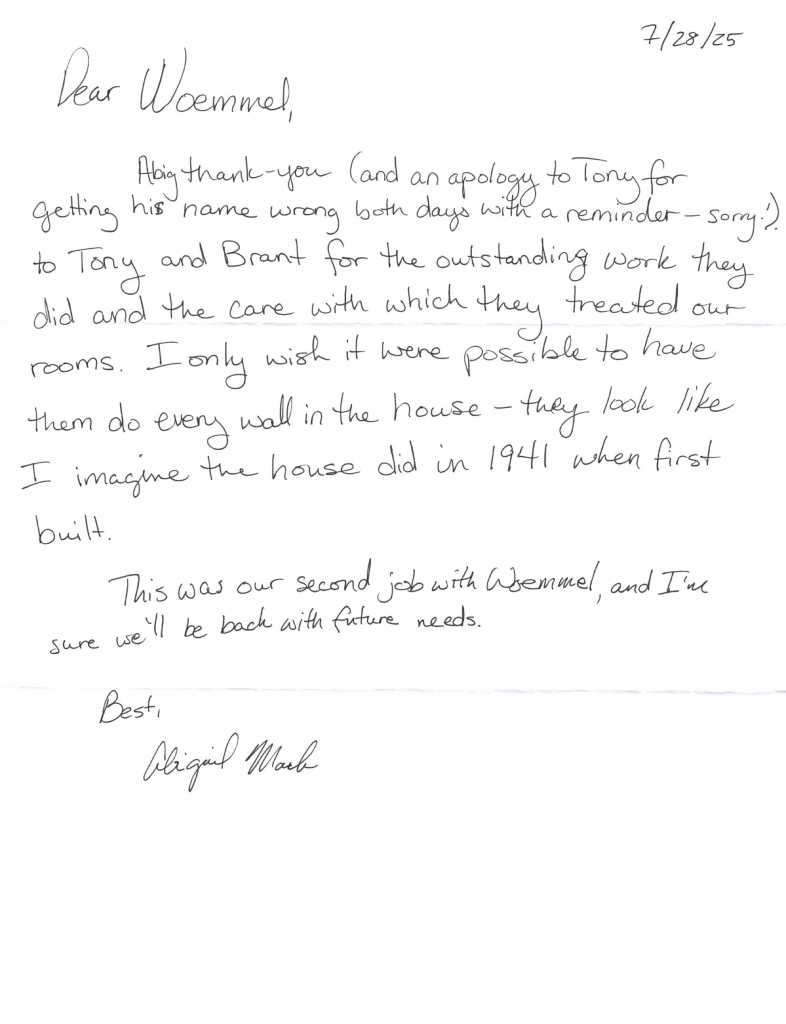 7/28/25
Dear Woemmel,
A big thank-you (and an apology to Tony for
getting his name wrong both days with a reminder – sorry!)
to Tony and Brant for the outstanding work they
did and the care with which they treated our
rooms. I only wish it were possible to have
them do every wall in the house – they look like
I imagine the house did in 1941 when first
built.
This was our second job with Woemmel, and I'm
sure we'll be back with future needs.
Best,
Abigail